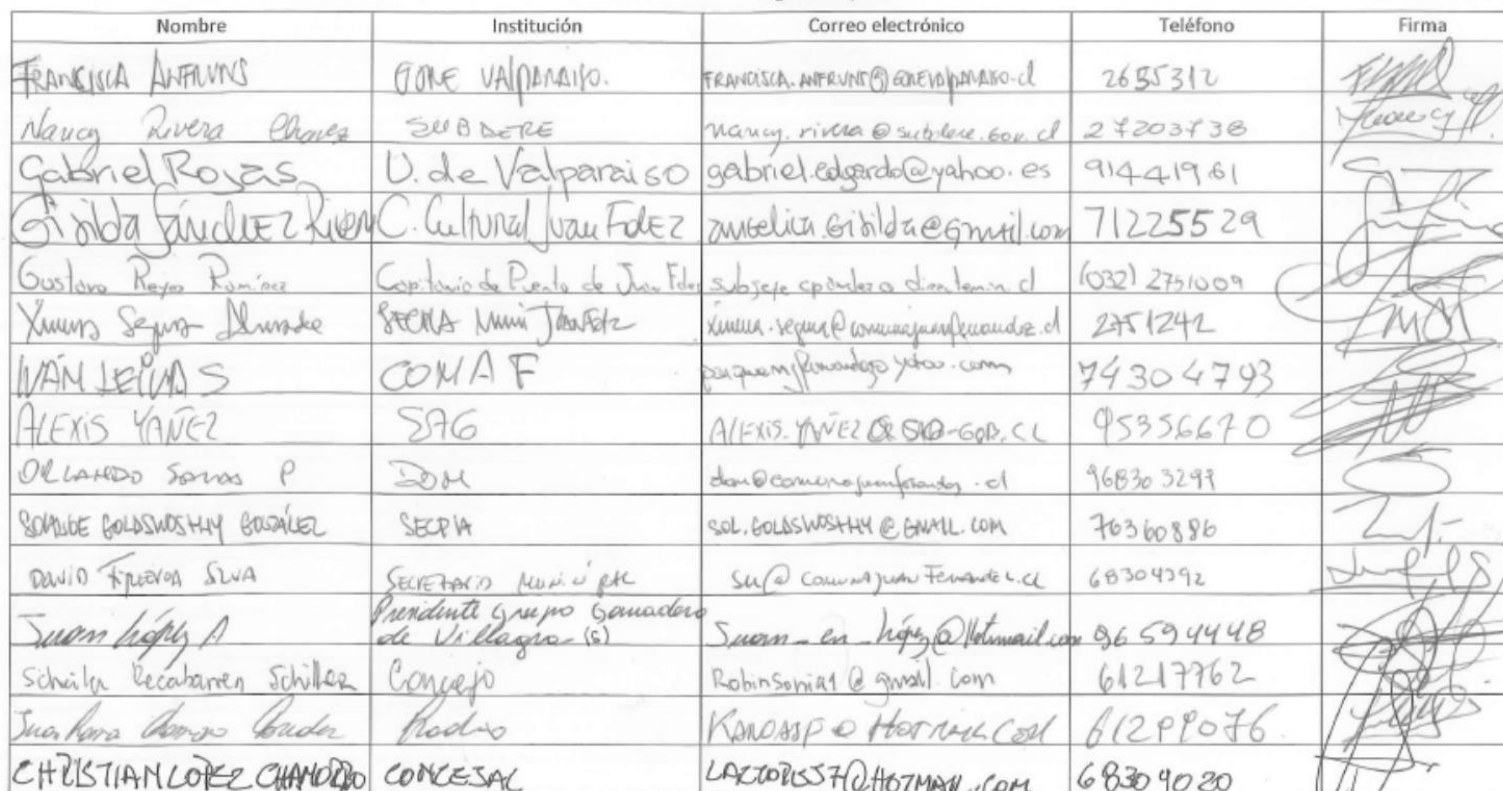 Nombre Institución Correo electrónico Teléfono Firma
FRANCISCA ANFRUNS GORE VALPARAISO. FRANCISCA.ANFRUNS@GOREVALPARAISO.cl 2655312
Nancy Rivera Chavez SUBDERE nancy.rivera@subdere.gov.cl 27203738
Gabriel Rojas U. de Valparaiso gabriel.edgardo@yahoo.es 91441961
Gisilda Sánchez River C. Cultural Juan Fdez angelica.Gisilda@Gmail.com 71225529
Gustavo Reyes Ramírez Capitanía de Puerto de Juan Fdez (032) 2751009
Ximena Segura SECPLA Muni Juan Fdz ximena.segura@comunajuanfernandez.cl 2751242
IVÁN LEIVA S CONAF 74304793
ALEXIS YAÑEZ SAG 95356670
ORLANDO P DOM dom@comunajuanfernandez.cl 968303299
GOLDSWOSTHY GONZÁLEZ SECPLA SOL.GOLDSWOSTHY@GMAIL.COM 76360886
DAVID SILVA SECRETARIO MUNICIPAL comunajuanfernandez.cl 68304392
Presidente Grupo Ganadero
Juan López A de Villagra (s) Juan_en_López@Hotmail.com 96594448
Scheila Recabarren Schiller Concejo Robinsonia1@gmail.com 61217762
Radio HOTMAIL.COM 61299076
CHRISTIAN LOPEZ CHAMORRO CONCEJAL 68304020